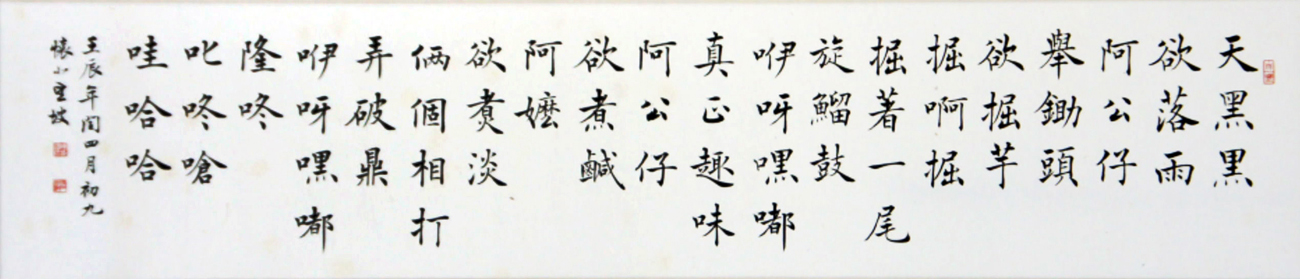 天黑黑
欲落雨
阿公仔
舉鋤頭
欲掘芋
掘啊掘
掘著一尾
旋鰡鼓
咿呀嘿嘟
真正趣味
阿公仔
欲煮鹹
阿嬤
欲煮淡
倆個相打
弄破鼎
咿呀嘿嘟
隆咚
叱咚嗆
哇哈哈
壬辰年閏四月初九
懷小